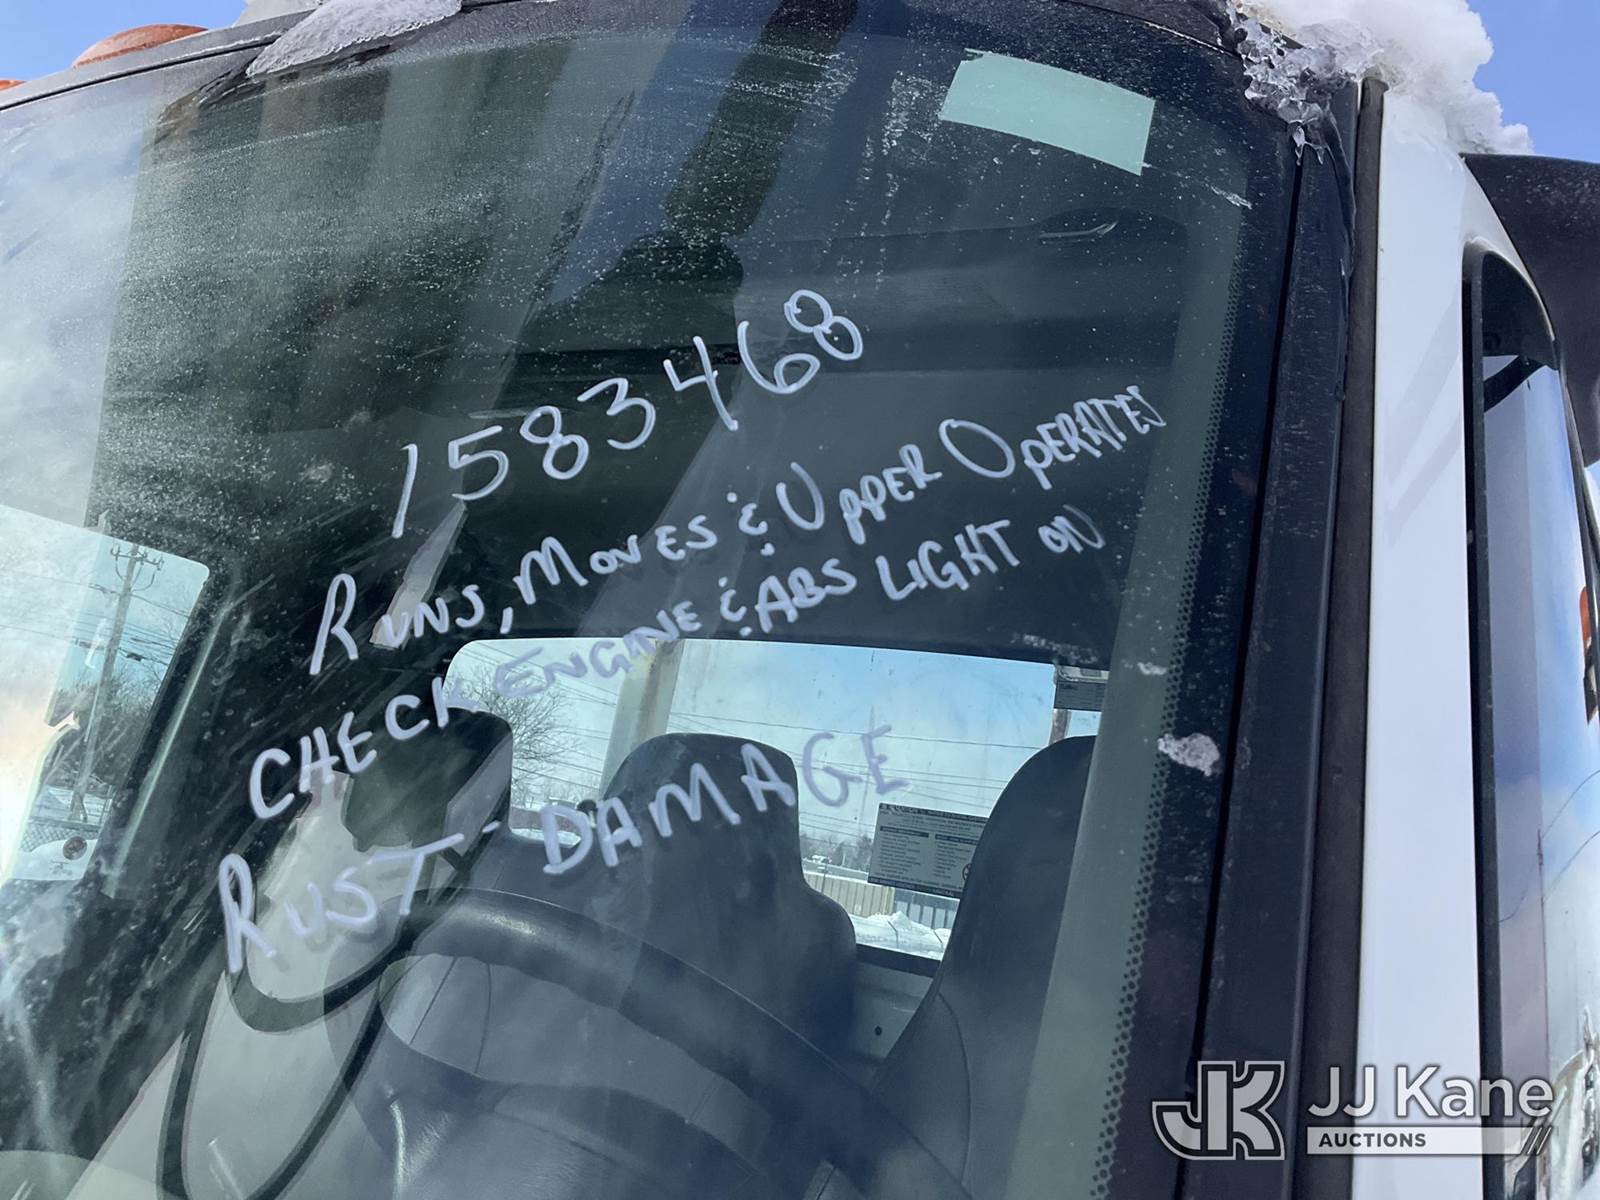 1583468
RUNS, MOVES & UPPER OPERATES
CHECK ENGINE & ABS LIGHT ON
RUST - DAMAGE
JJ Kane
AUCTIONS